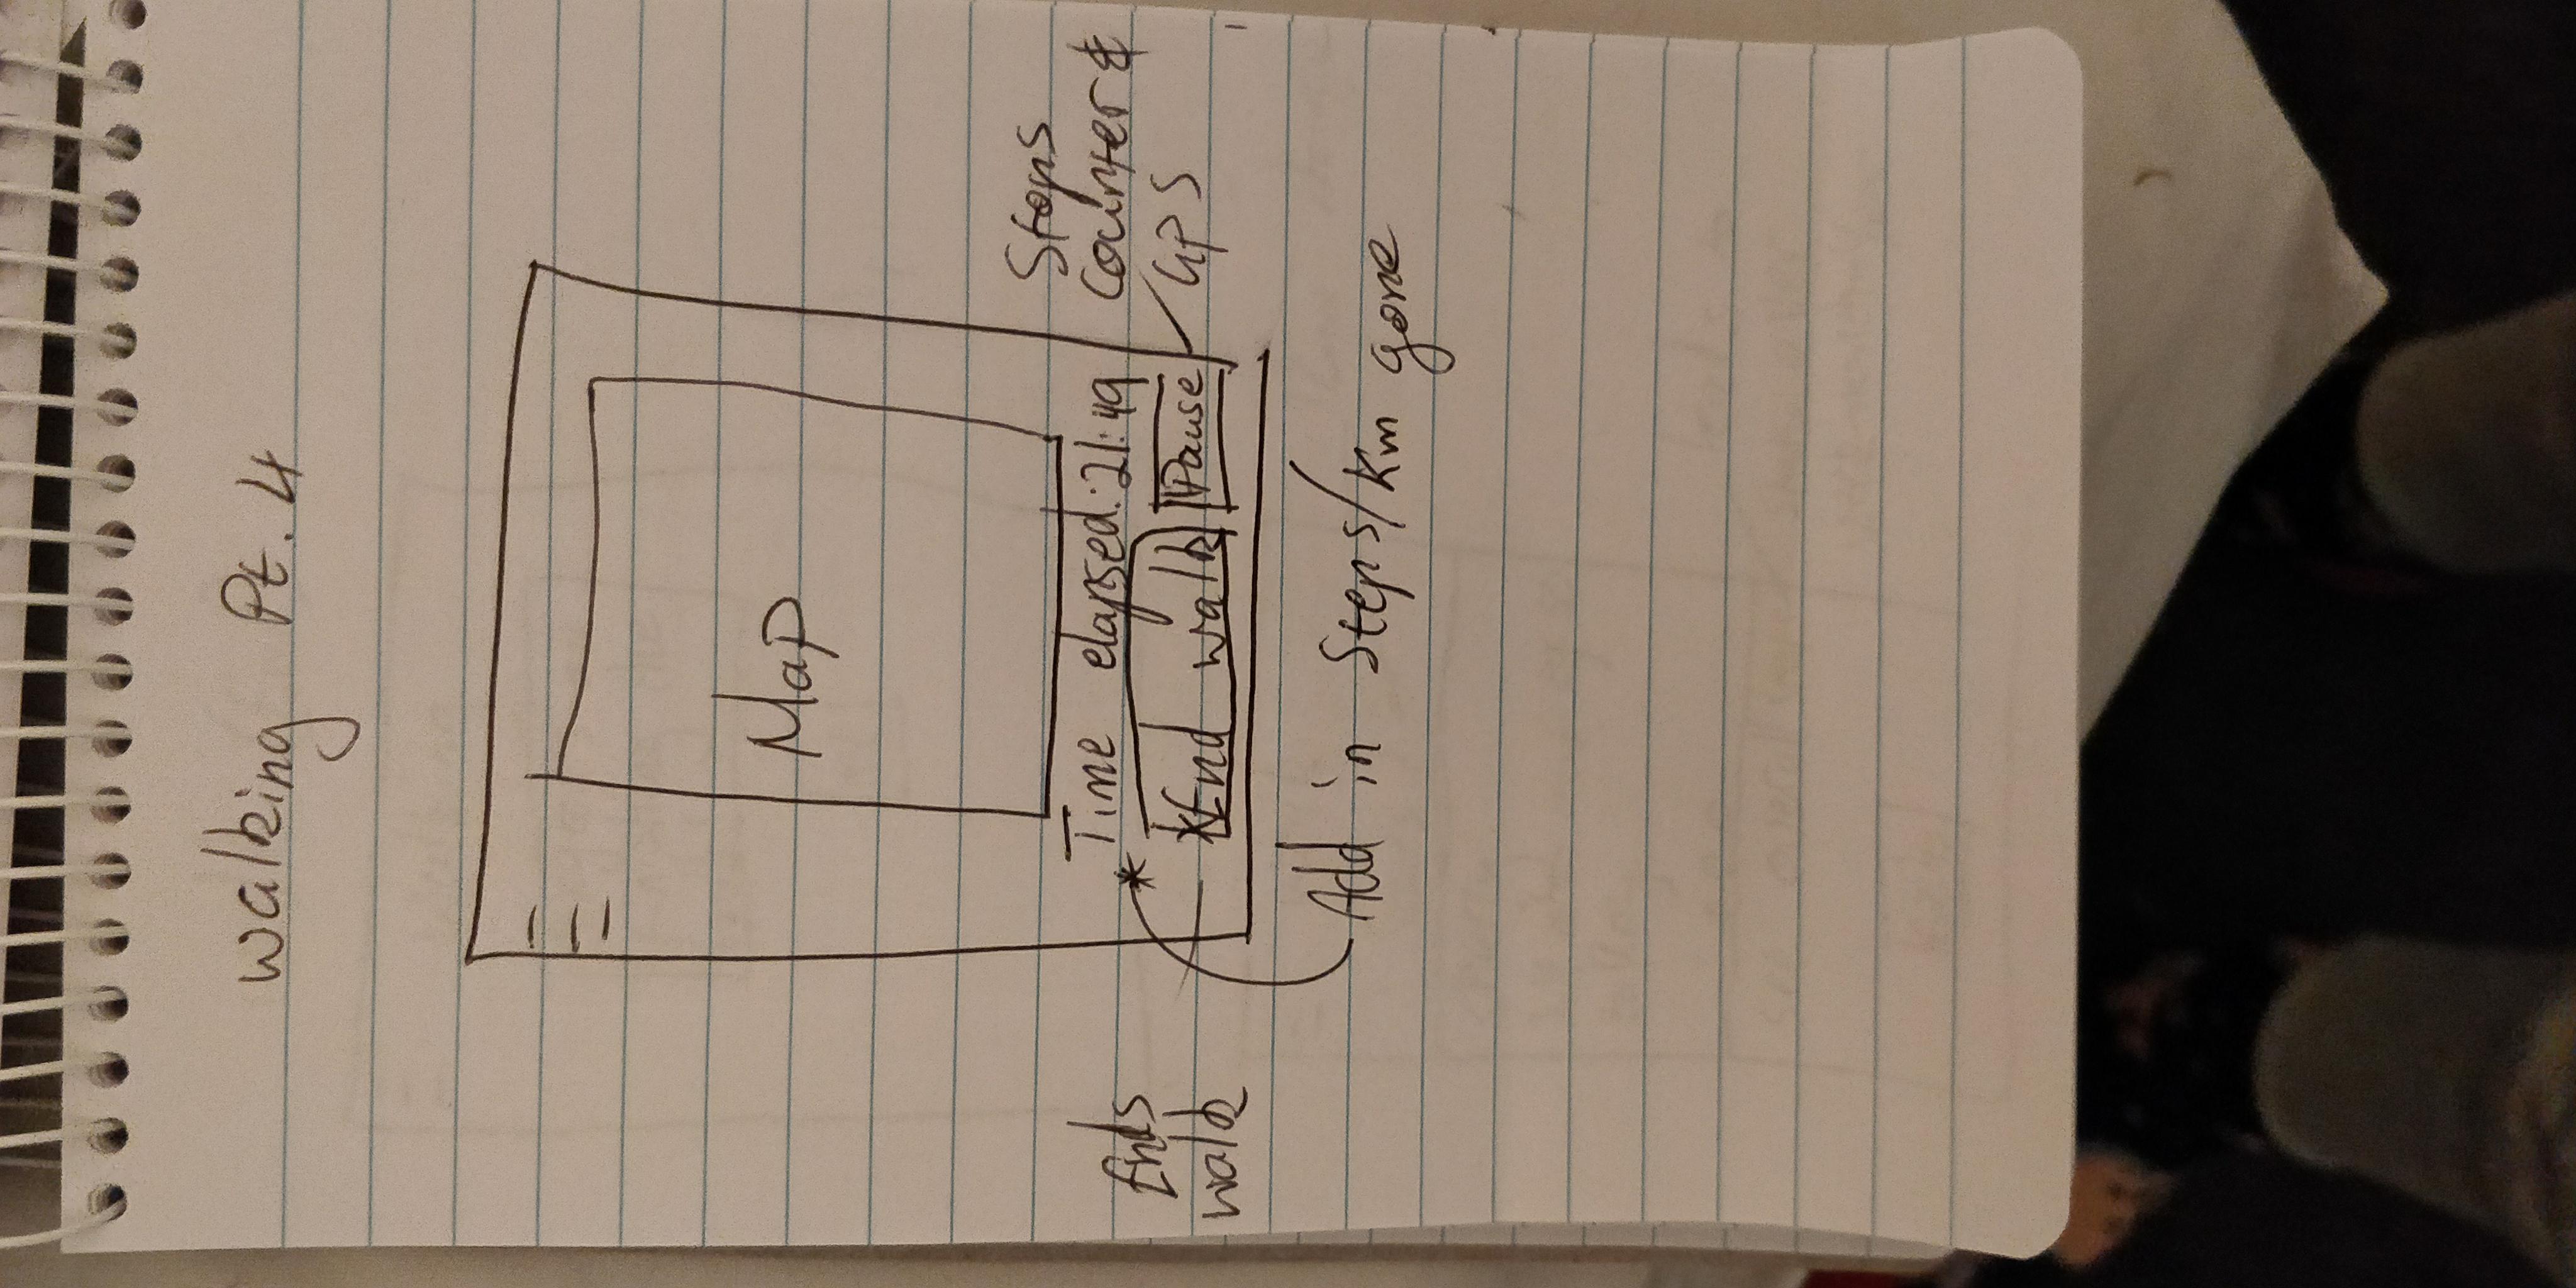 Walking Pt. 4
Map
Time elapsed: 21:49
*
*End walk
Pause
Ends
walk
Stops
Counter &
GPS
Add in Steps/Km gone